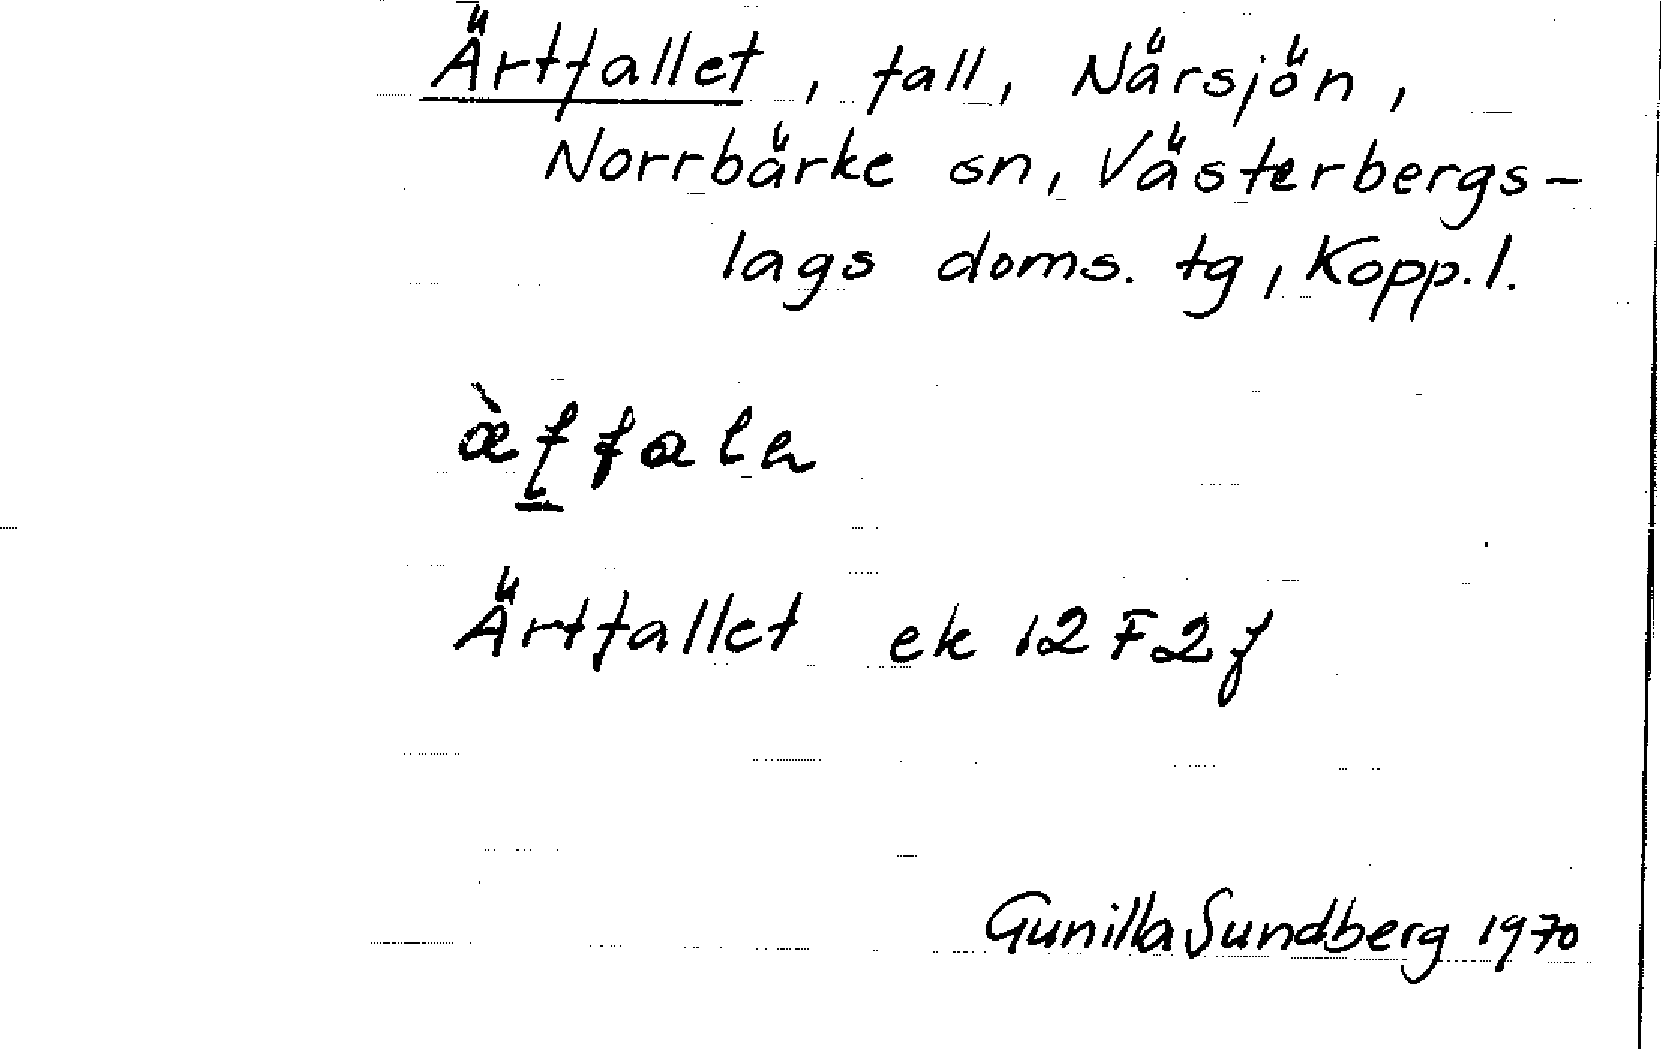 Ärtfallet, fall, Närsjön,
Norrbärke sn, Västerbergs-
lags doms. tg, Kopp. l.
Ärtfallet ek 12F2f
Gunilla Sundberg 1970